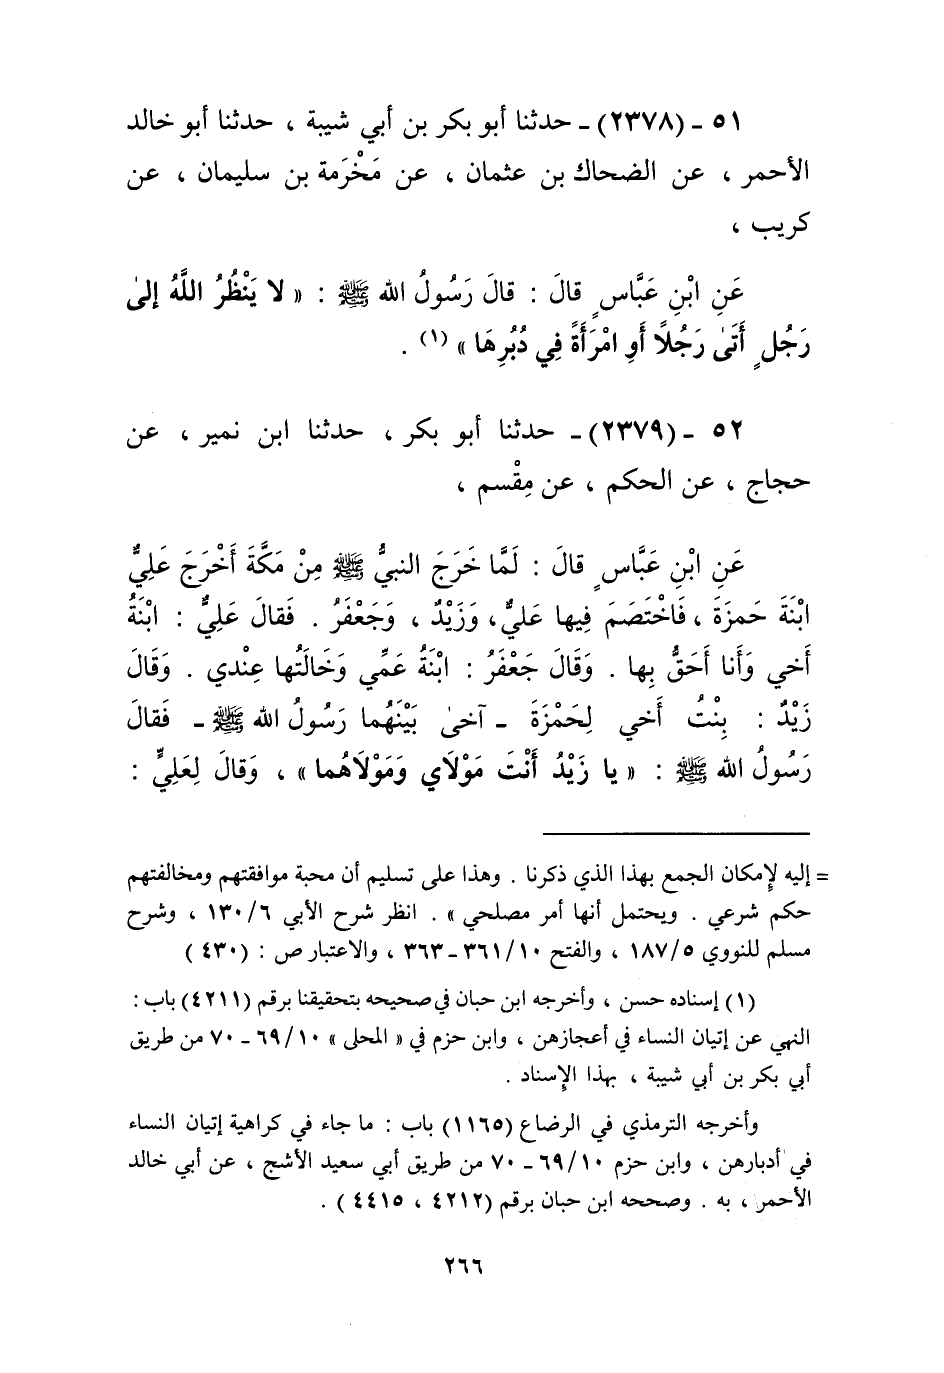 ٥١ ـ (٢٣٧٨) ـ حدثنا أبو بكر بن أبي شيبة ، حدثنا أبو خالد
الأحمر ، عن الضحاك بن عثمان ، عن مَخْرَمة بن سليمان ، عن
كريب ،
عَنِ ابْنِ عَبَّاسٍ قالَ : قالَ رَسُولُ الله ﷺ : « لا يَنْظُرُ اللَّهُ إلىٰ
رَجُلٍ أَتَىٰ رَجُلًا أَوِ امْرَأَةً فِي دُبُرِهَا » (١) .
٥٢ ـ (٢٣٧٩) ـ حدثنا أبو بكر ، حدثنا ابن نمير ، عن
حجاج ، عن الحكم ، عن مِقْسم ،
عَنِ ابْنِ عَبَّاسٍ قالَ : لَمَّا خَرَجَ النبيُّ ﷺ مِنْ مَكَّةَ أَخْرَجَ عَلِيٌّ
ابْنَةَ حَمزَةَ ، فَاخْتَصَمَ فِيها عَليٌّ، وَزَيْدٌ ، وَجَعْفَرُ . فَقالَ عَلِيٌّ : ابْنَةُ
أَخي وَأَنا أَحَقُّ بِها . وَقَالَ جَعْفَرُ : ابْنَةُ عَمِّي وَخَالَتُها عِنْدي . وَقَالَ
زَيْدٌ : بِنْتُ أَخي لِحَمْزَةَ ـ آخىٰ بَيْنَهُما رَسُولُ الله ﷺ ـ فَقالَ
رَسُولُ الله ﷺ : « يا زَيْدُ أَنْتَ مَوْلَاي وَمَوْلَاهُما » ، وَقالَ لِعَلِيٍّ :
= إليه لإِمكان الجمع بهذا الذي ذكرنا . وهذا على تسليم أن محبة موافقتهم ومخالفتهم
حكم شرعي . ويحتمل أنها أمر مصلحي » . انظر شرح الأبي ١٣٠/٦ ، وشرح
مسلم للنووي ١٨٧/٥ ، والفتح ٣٦١/١٠ ـ ٣٦٣ ، والاعتبار ص : (٤٣٠)
(١) إسناده حسن ، وأخرجه ابن حبان في صحيحه بتحقيقنا برقم (٤٢١١) باب :
النهي عن إتيان النساء في أعجازهن ، وابن حزم في « المحلى » ٦٩/١٠ ـ ٧٠ من طريق
أبي بكر بن أبي شيبة ، بهذا الإِسناد .
وأخرجه الترمذي في الرضاع (١١٦٥) باب : ما جاء في كراهية إتيان النساء
في أدبارهن ، وابن حزم ٦٩/١٠ ـ ٧٠ من طريق أبي سعيد الأشج ، عن أبي خالد
الأحمر ، به . وصححه ابن حبان برقم (٤٢١٢ ، ٤٤١٥) .
٢٦٦